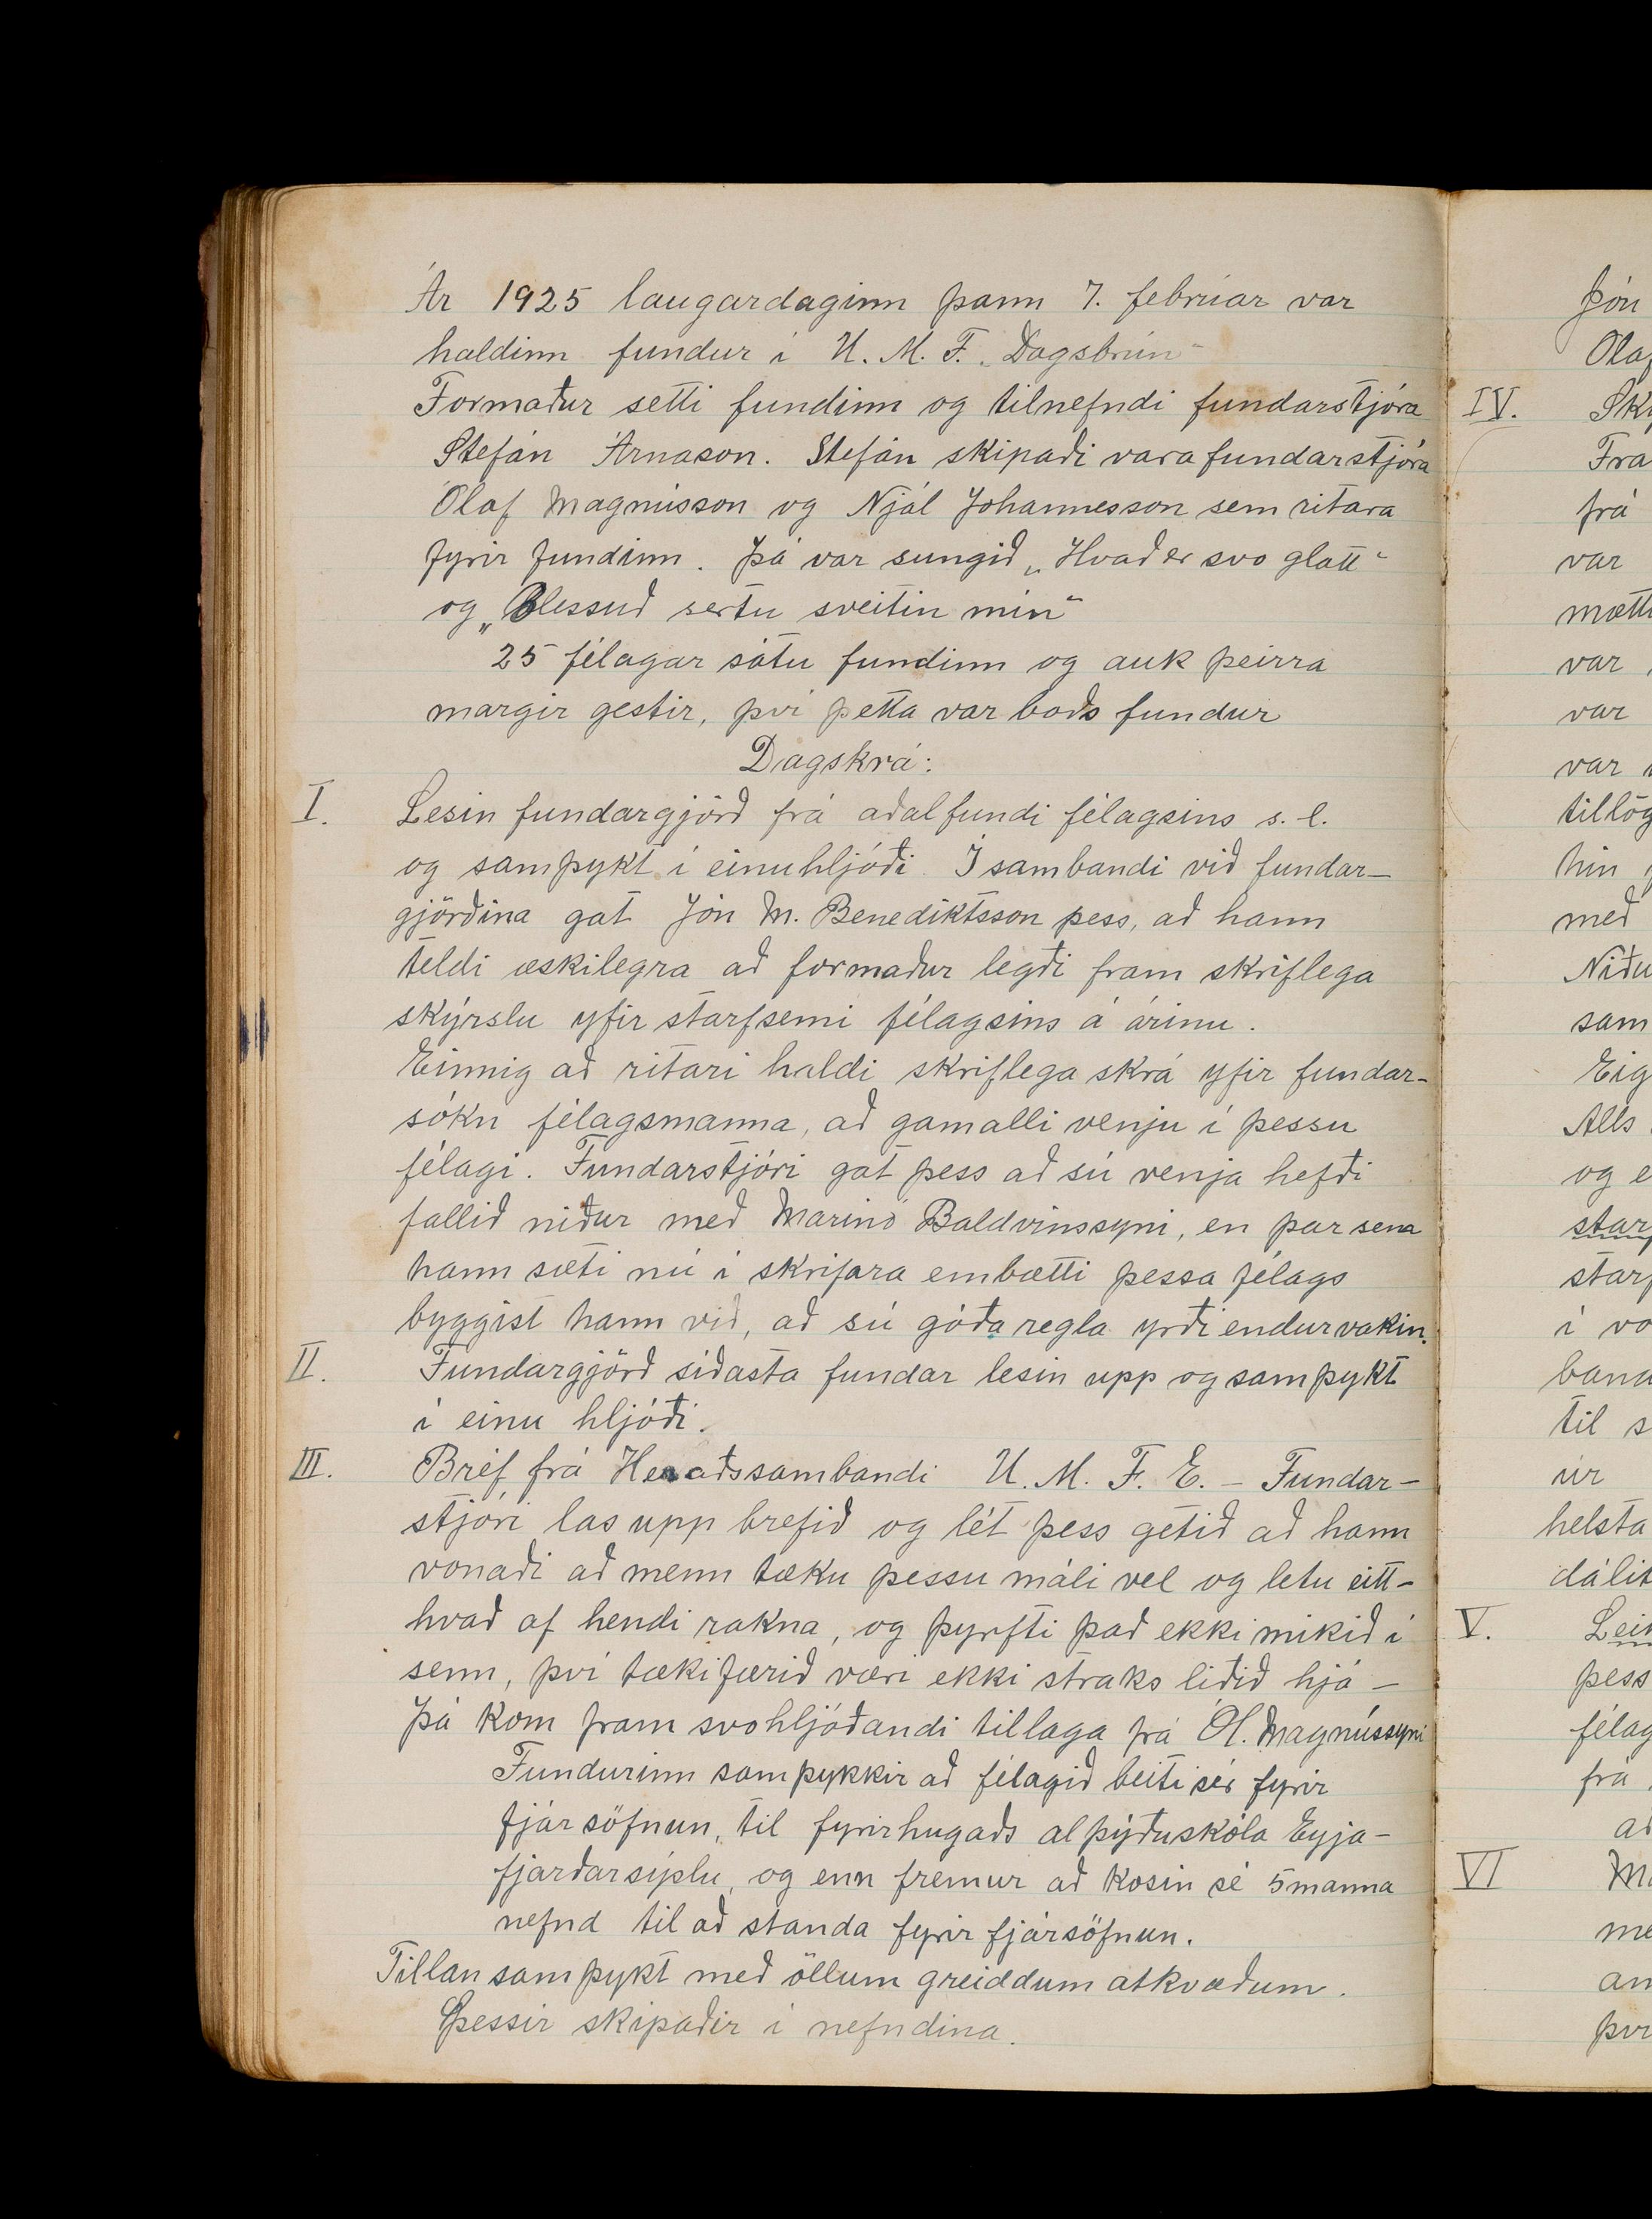 Ár 1925 laugardaginn þann 7. febrúar var
haldinn fundur í U. M. F. „Dagsbrún“
Formaður setti fundinn og tilnefndi fundarstjóra
Stefán Árnason. Stefán skipaði varafundarstjóra
Ólaf Magnússon og Njál Jóhannesson sem ritara
fyrir fundinn. Þá var sungið „Hvað er svo glatt“
og „Blessuð sértu sveitin mín“
25 félagar sátu fundinn og auk þeirra
margir gestir, því þetta var boðs fundur
Dagskrá:
I. Lesin fundargjörð frá aðalfundi félagsins s. l.
og samþykt í einuhljóði. Í sambandi við fundar-
gjörðina gat Jón M. Benediktsson þess, að hann
teldi æskilegra að formaður legði fram skriflega
skýrslu yfir starfsemi félagsins á árinu.
Einnig að ritari haldi skriflega skrá yfir fundar-
sókn félagsmanna, að gamalli venju í þessu
félagi. Fundarstjóri gat þess að sú venja hefði
fallið niður með Marinó Baldvinssyni, en þar sem
hann sæti nú í skrifara embætti þessa félags
byggist hann við, að sú góða regla yrði endurvakin.
II. Fundargjörð síðasta fundar lesin upp og samþykt
í einu hljóði.
III. Bréf frá Heraðssambandi U. M. F. E. - Fundar-
stjóri las upp brefið og lét þess getið að hann
vonaði að menn tæku þessu máli vel og letu eitt-
hvað af hendi rakna, og þyrfti það ekki mikið í
senn, því tækifærið væri ekki straks liðið hjá -
Þá kom fram svohljóðandi tillaga frá Ól. Magnússyni
Fundurinn samþykkir að félagið beiti sér fyrir
fjársöfnun, til fyrirhugaðs alþýðuskóla Eyja-
fjarðarsýslu, og enn fremur að kosin sé 5 manna
nefnd til að standa fyrir fjársöfnun.
Tillan samþykt með öllum greiddum atkvæðum.
Þessir skipaðir í nefndina.
Jón
IV.
frá
var
var
var
var
með
Alls
í
til
úr
helsta
V.
þess
frá
VI